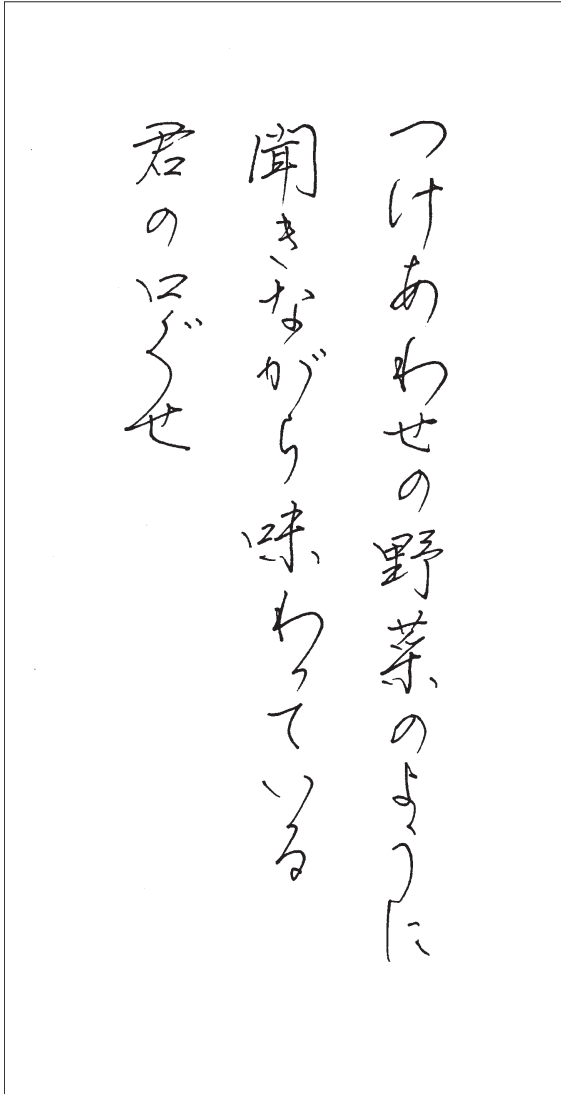 つけあわせの野菜のように
聞きながら味わっている
君の口ぐせ